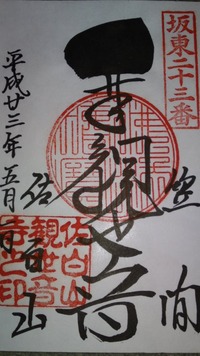 坂東二十三番
笠間
観世音
佐白山
平成廿三年五月日
佐白山
観世音
寺之印